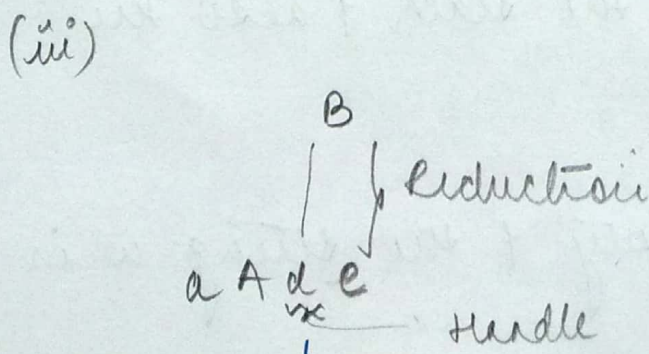 (iii)
B
Reduction
a A d e
Handle